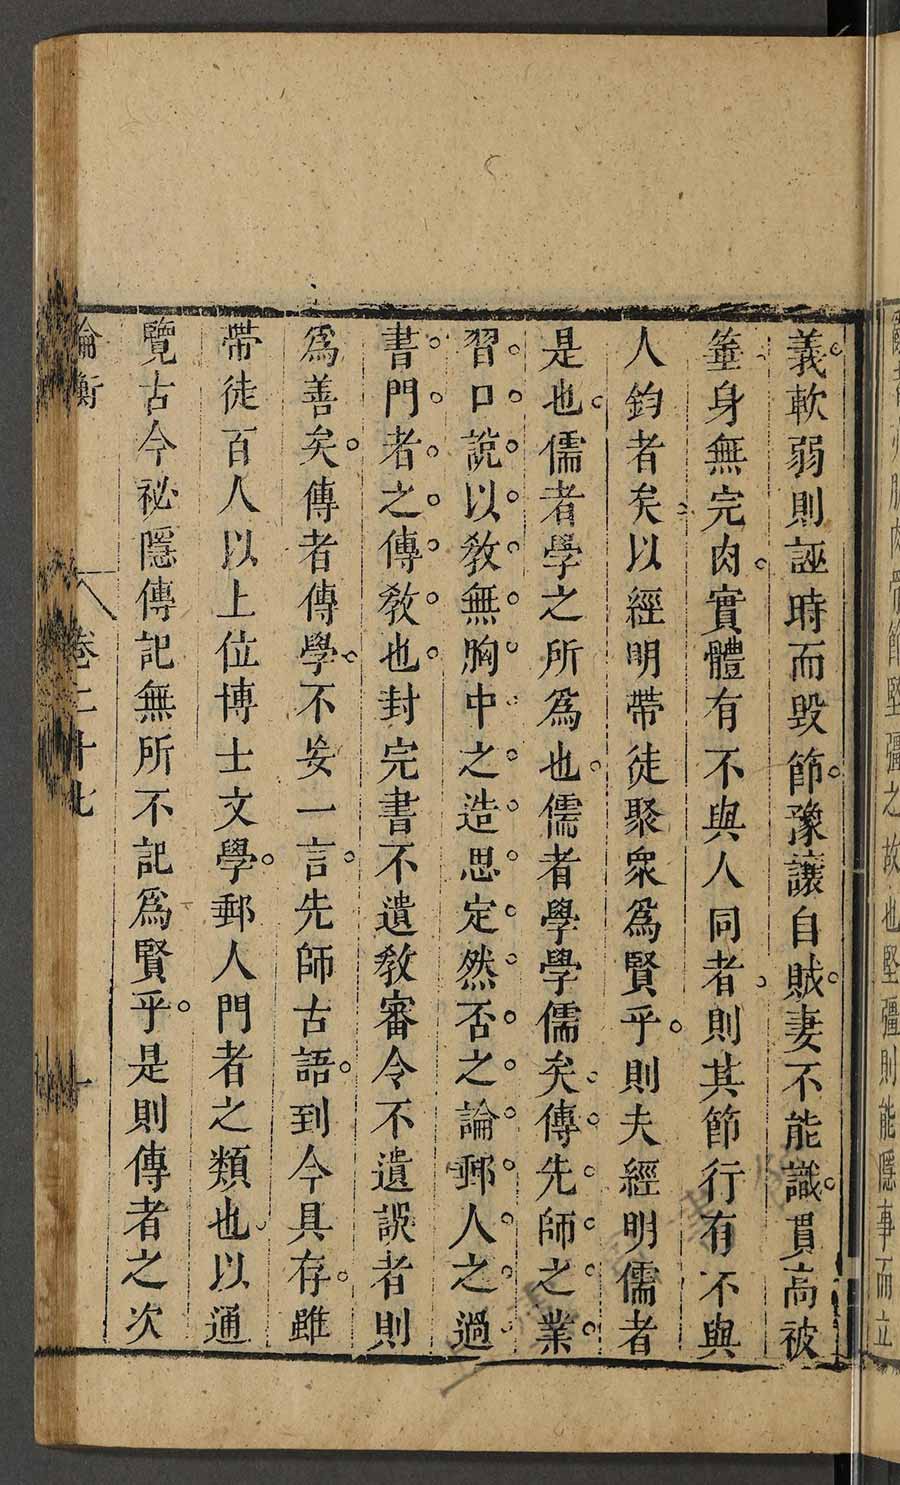 義軟弱則誣時而毀節豫讓自賊妻不能識貫高被
箠身無完肉實體有不與人同者則其節行有不與
人鈞者矣以經明帶徒聚衆爲賢乎則夫經明儒者
是也儒者學之所爲也儒者學學儒矣傳先師之業
習口說以敎無胸中之造思定然否之論郵人之過
書門者之傳敎也封完書不遺敎審令不遺誤者則
爲善矣傳者傳學不妄一言先師古語到今具存雖
帶徒百人以上位博士文學郵人門者之類也以通
覽古今祕隱傳記無所不記爲賢乎是則傳者之次
論衡 卷二十七